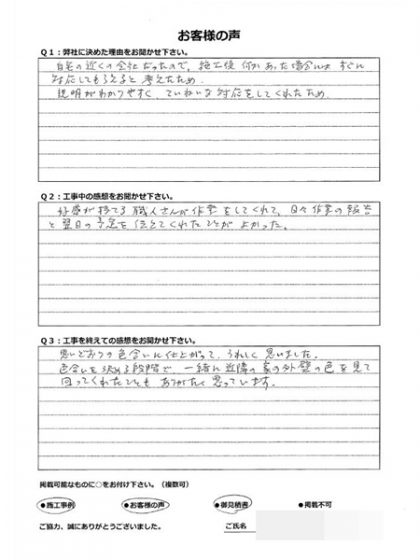 お客様の声
Q1：弊社に決めた理由をお聞かせ下さい。
自宅の近くの会社だったので、施工後何かあった場合には すぐに
対応してもらえると考えたため。
説明がわかりやすく、ていねいな対応をしてくれたため。
Q2：工事中の感想をお聞かせ下さい。
好感が持てる職人さんが作業をしてくれて、日々作業の報告
と翌日の予定を伝えてくれたのが よかった。
Q3：工事を終えての感想をお聞かせ下さい。
思いどおりの色合いに仕上がって、うれしく思いました。
色合いを決める段階で、一緒に近隣の家の外壁の色を見て
回ってくれたことも ありがたく思っています。
掲載可能なものに○をお付け下さい。（複数可）
●施工事例 ●お客様の声 ●御見積書 ●掲載不可
ご協力、誠にありがとうございました。 ご氏名